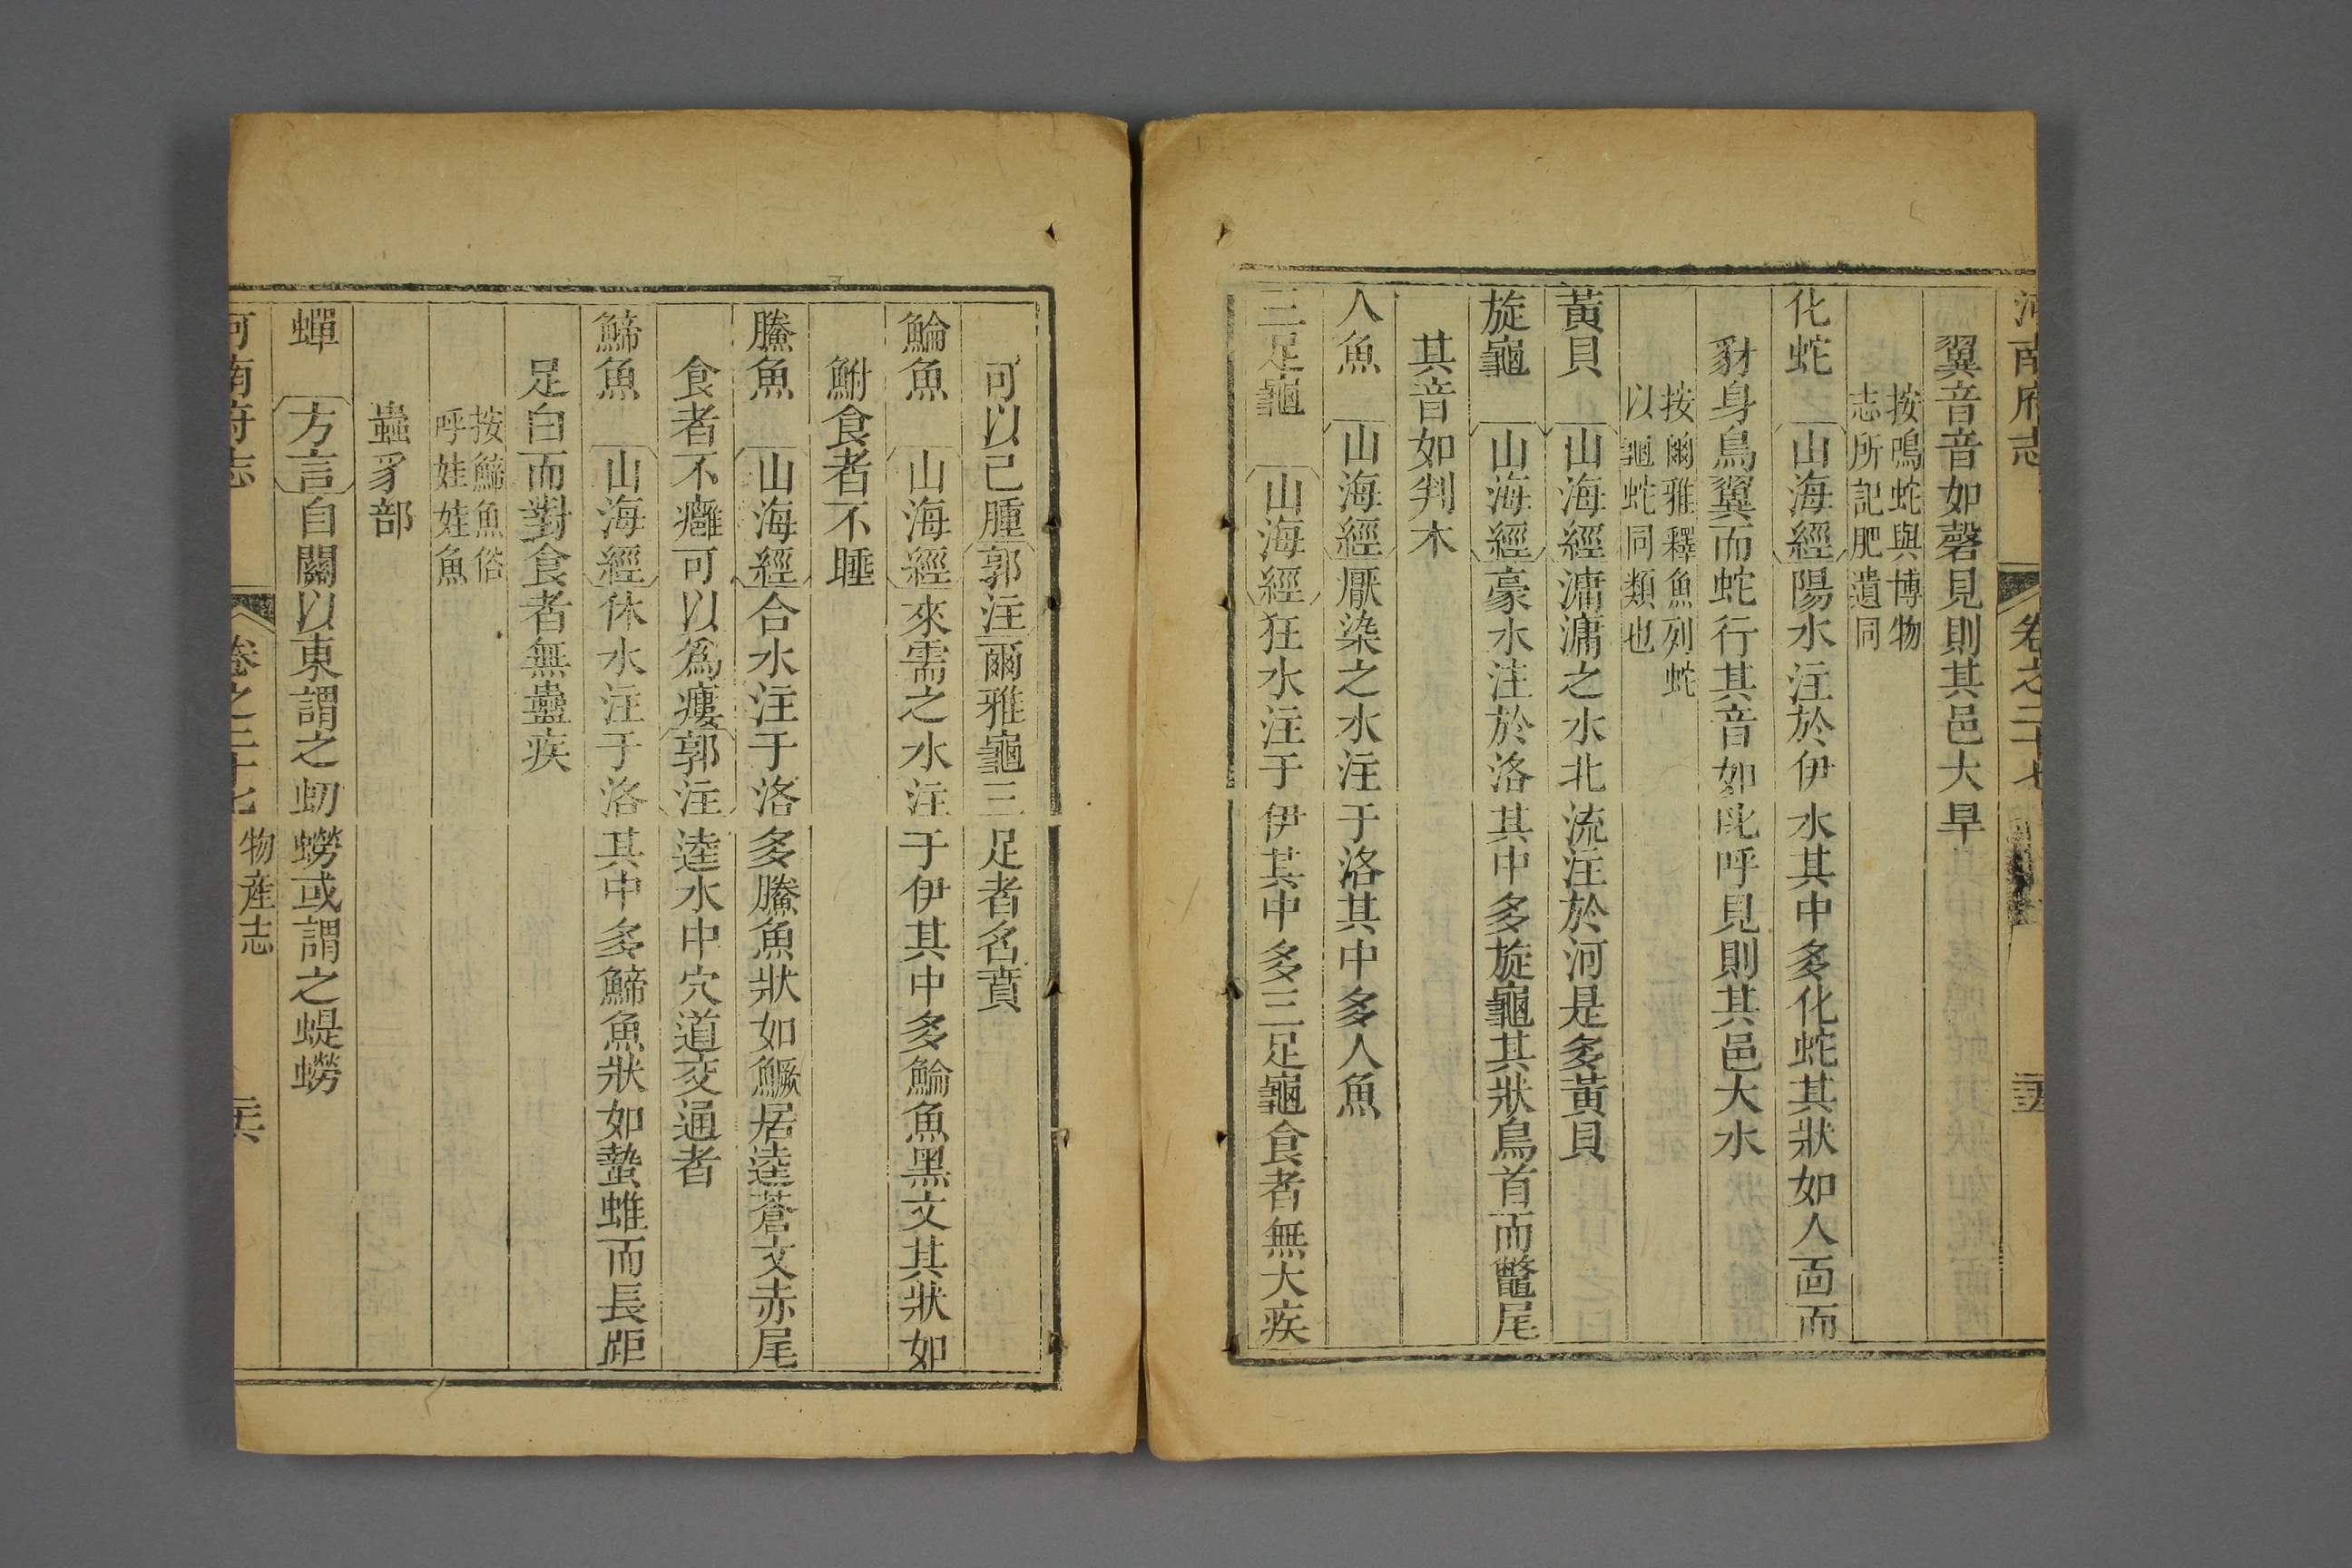 河南府志
卷之二十七
翼音音如磬見則其邑大旱
按鳴蛇與博物
志所記肥遺同
化蛇 山海經陽水注於伊水其中多化蛇其狀如人面而
豺身鳥翼而蛇行其音如叱呼見則其邑大水
按爾雅釋魚列蛇
以龜蛇同類也
黃貝 山海經濝濝之水北流注於河是多黃貝
旋龜 山海經豪水注於洛其中多旋龜其狀鳥首而鼈尾
其音如判木
人魚 山海經厭染之水注于洛其中多人魚
三足龜 山海經狂水注于伊其中多三足龜食者無大疾
可以已腫郭注爾雅龜三足者名賁
鯩魚 山海經來需之水注于伊其中多鯩魚黑文其狀如
鮒食者不睡
騰魚 山海經合水注于洛多騰魚狀如鱖居逵蒼文赤尾
食者不癰可以為瘻郭注逵水中穴道交通者
鯑魚 山海經休水注于洛其中多鯑魚狀如蟄蜼而長距
足白而對食者無蠱疾
按鯑魚俗
呼娃娃魚
蟲豸部
蟬 方言自關以東謂之虭蟧或謂之蝭蟧
河南府志
卷之二十七
物產志